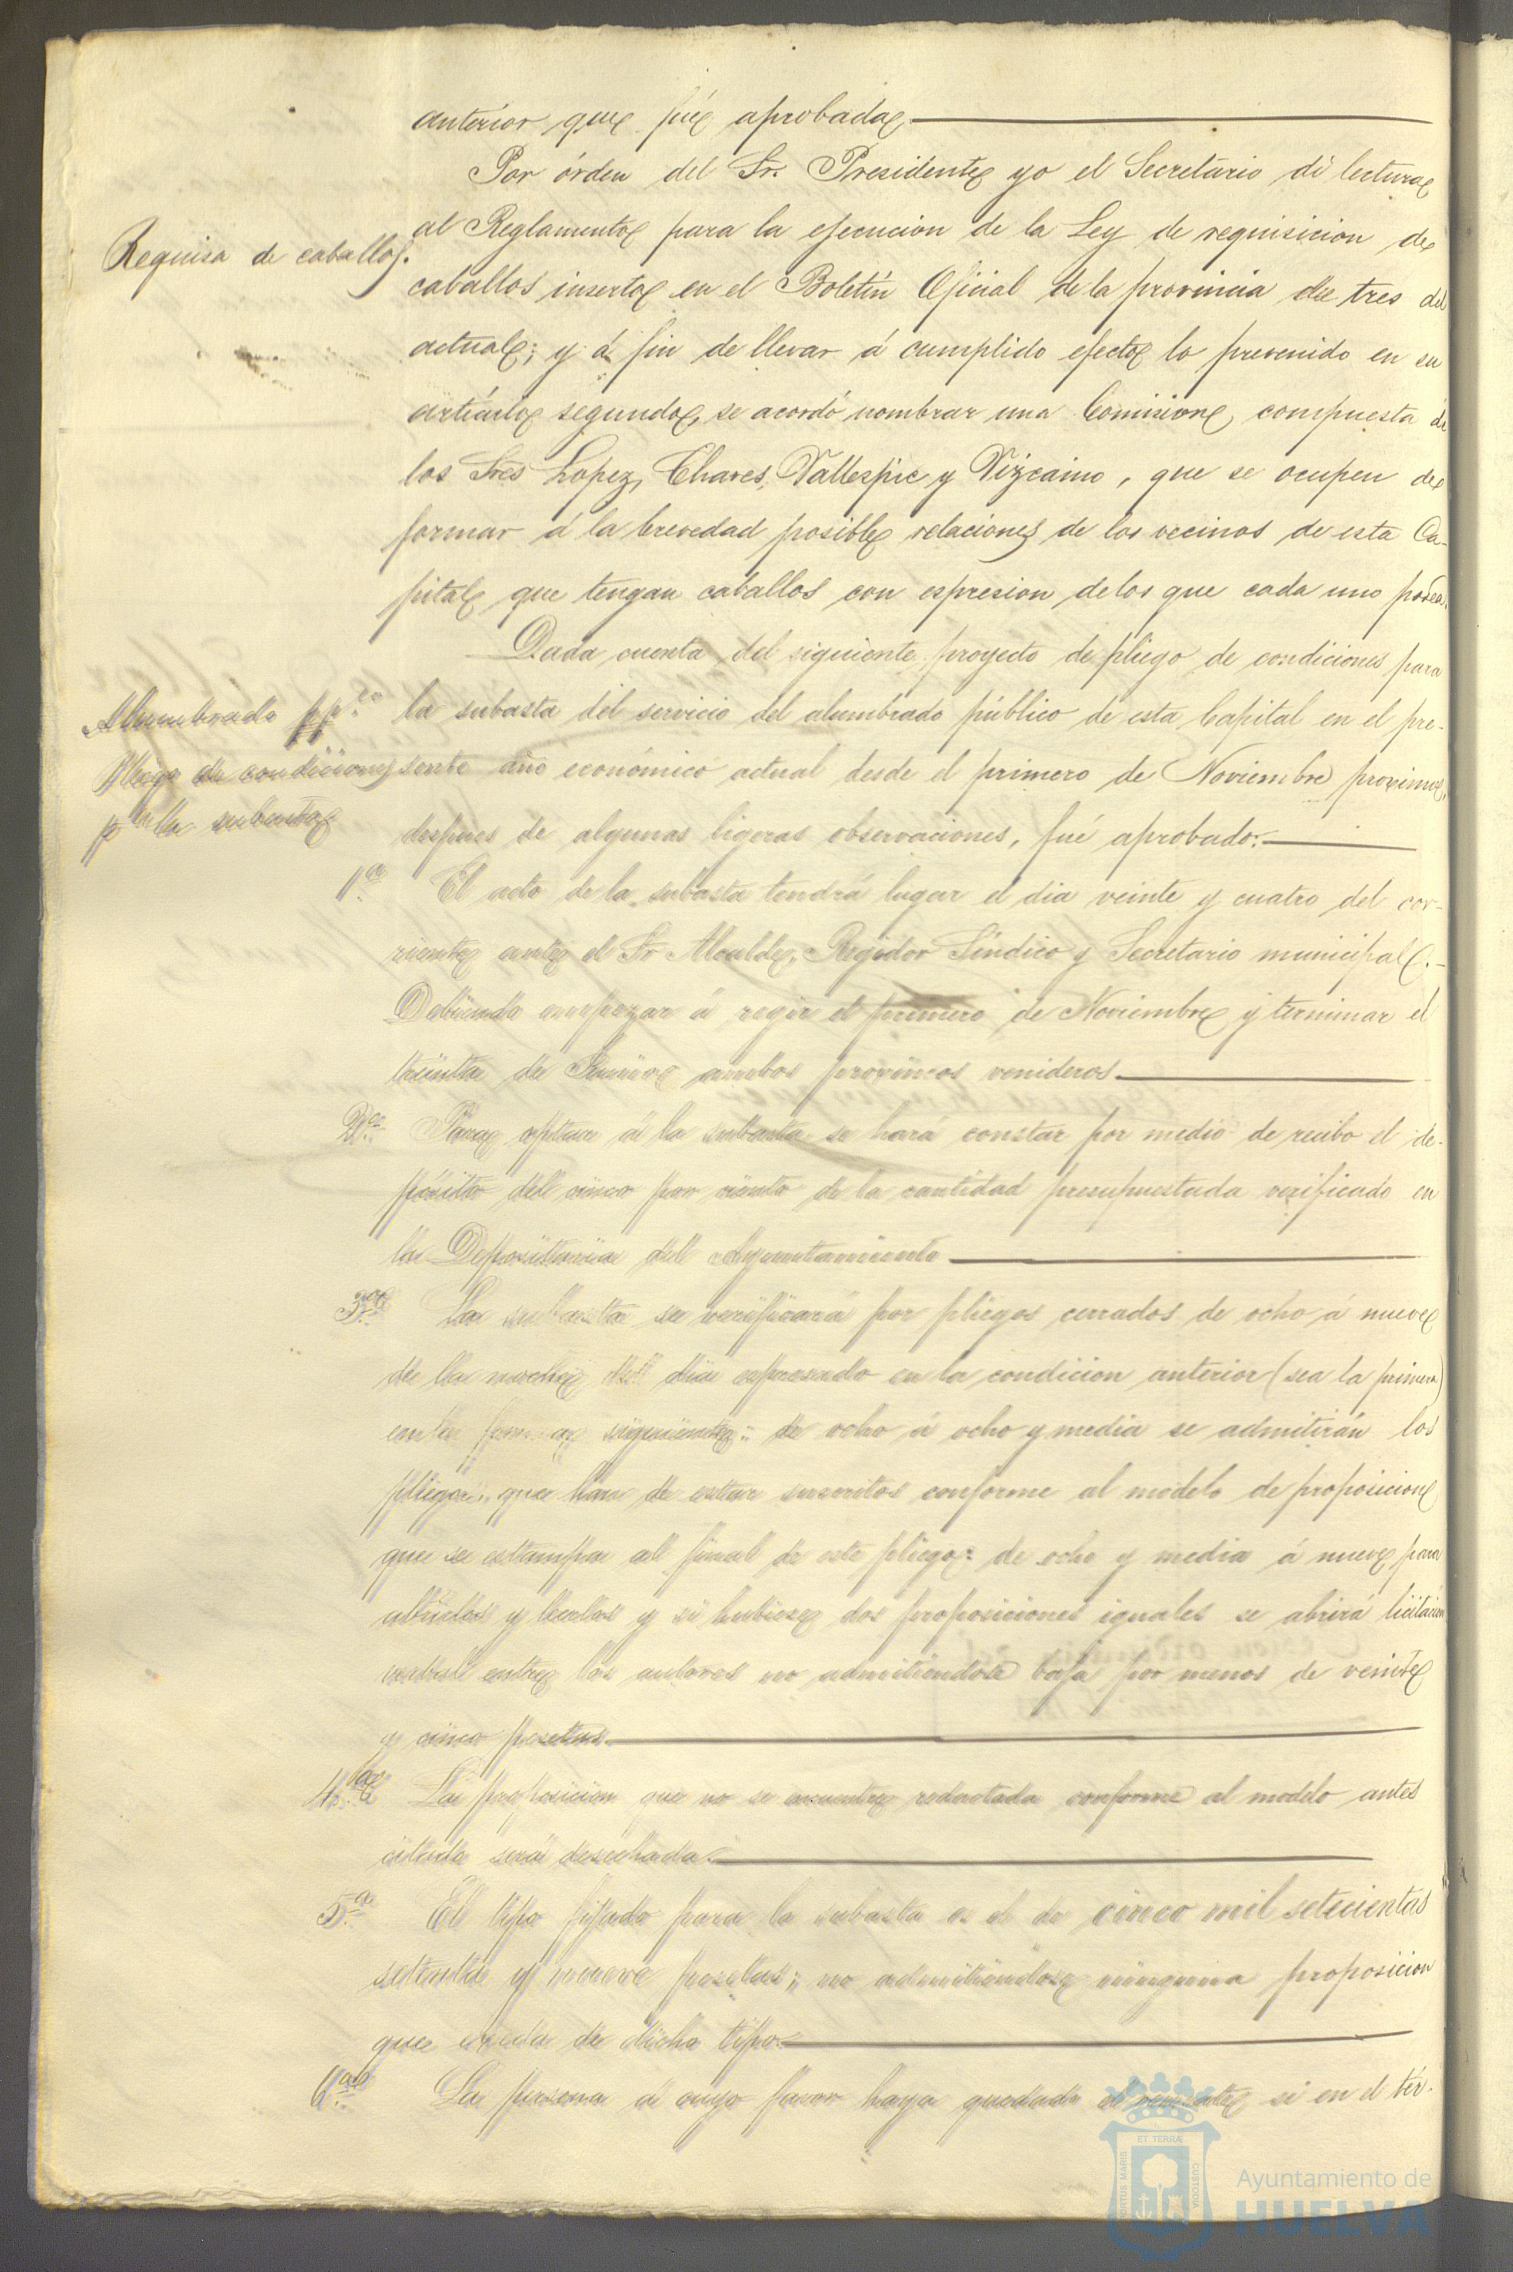 anterior que fué aprobada.
Por órden del Sr. Presidente yo el Secretario dí lectura
Requisa de caballos.
al Reglamento para la ejecucion de la Ley de requisicion de
caballos inserto en el Boletin Oficial de la provincia de tres del
actual; y á fin de llevar á cumplido efecto lo prevenido en su
artículo segundo, se acordó nombrar una Comision, compuesta de
los Sres Lopez, Chaves, Vallespin y Vizcaino, que se ocupen de
formar á la brevedad posible relaciones de los vecinos de esta Ca-
pital que tengan caballos con espresion de los que cada uno posea.
Dada cuenta del siguiente proyecto de pliego de condiciones para
Alumbrado ppco
la subasta del servicio del alumbrado público de esta Capital en el pre-
Pliego de condiciones
sente año económico actual desde el primero de Noviembre proximo,
pa la subasta
despues de algunas ligeras observaciones, fué aprobado:
1a. El acto de la subasta tendrá lugar el dia veinte y cuatro del cor-
riente ante el Sr Alcalde, Regidor Síndico y Secretario municipal.
Debiendo empezar á regir el primero de Noviembre y terminar el
treinta de Junio ambos proximos venideros.
2a. Para optar á la subasta se hará constar por medio de recibo el de-
pósito del cinco por ciento de la cantidad presupuestada verificado en
la Depositaria del Ayuntamiento
3a. La subasta se verificará por pliegos cerrados de ocho á nueve
de la noche del dia espresado en la condicion anterior (sea la primera)
en la forma siguiente: de ocho á ocho y media se admitirán los
pliegos, que han de estar suscritos conforme al modelo de proposicion
que se estampa al final de este pliego: de ocho y media á nueve para
abrirlos y leerlos y si hubiese dos proposiciones iguales se abrirá licitacion
verbal entre los autores no admitiendose baja por menos de veinte
y cinco pesetas.
4a. La proposicion que no se encuentre redactada conforme al modelo antes
citado será desechada.
5a. El tipo fijado para la subasta es el de cinco mil setecientas
setenta y nueve pesetas; no admitiendose ninguna proposicion
que esceda de dicho tipo.
6a. La persona á cuyo favor haya quedado el remate si en el tér-
PORTUS MARIS
ET TERRÆ
CUSTODIA
Ayuntamiento de
HUELVA